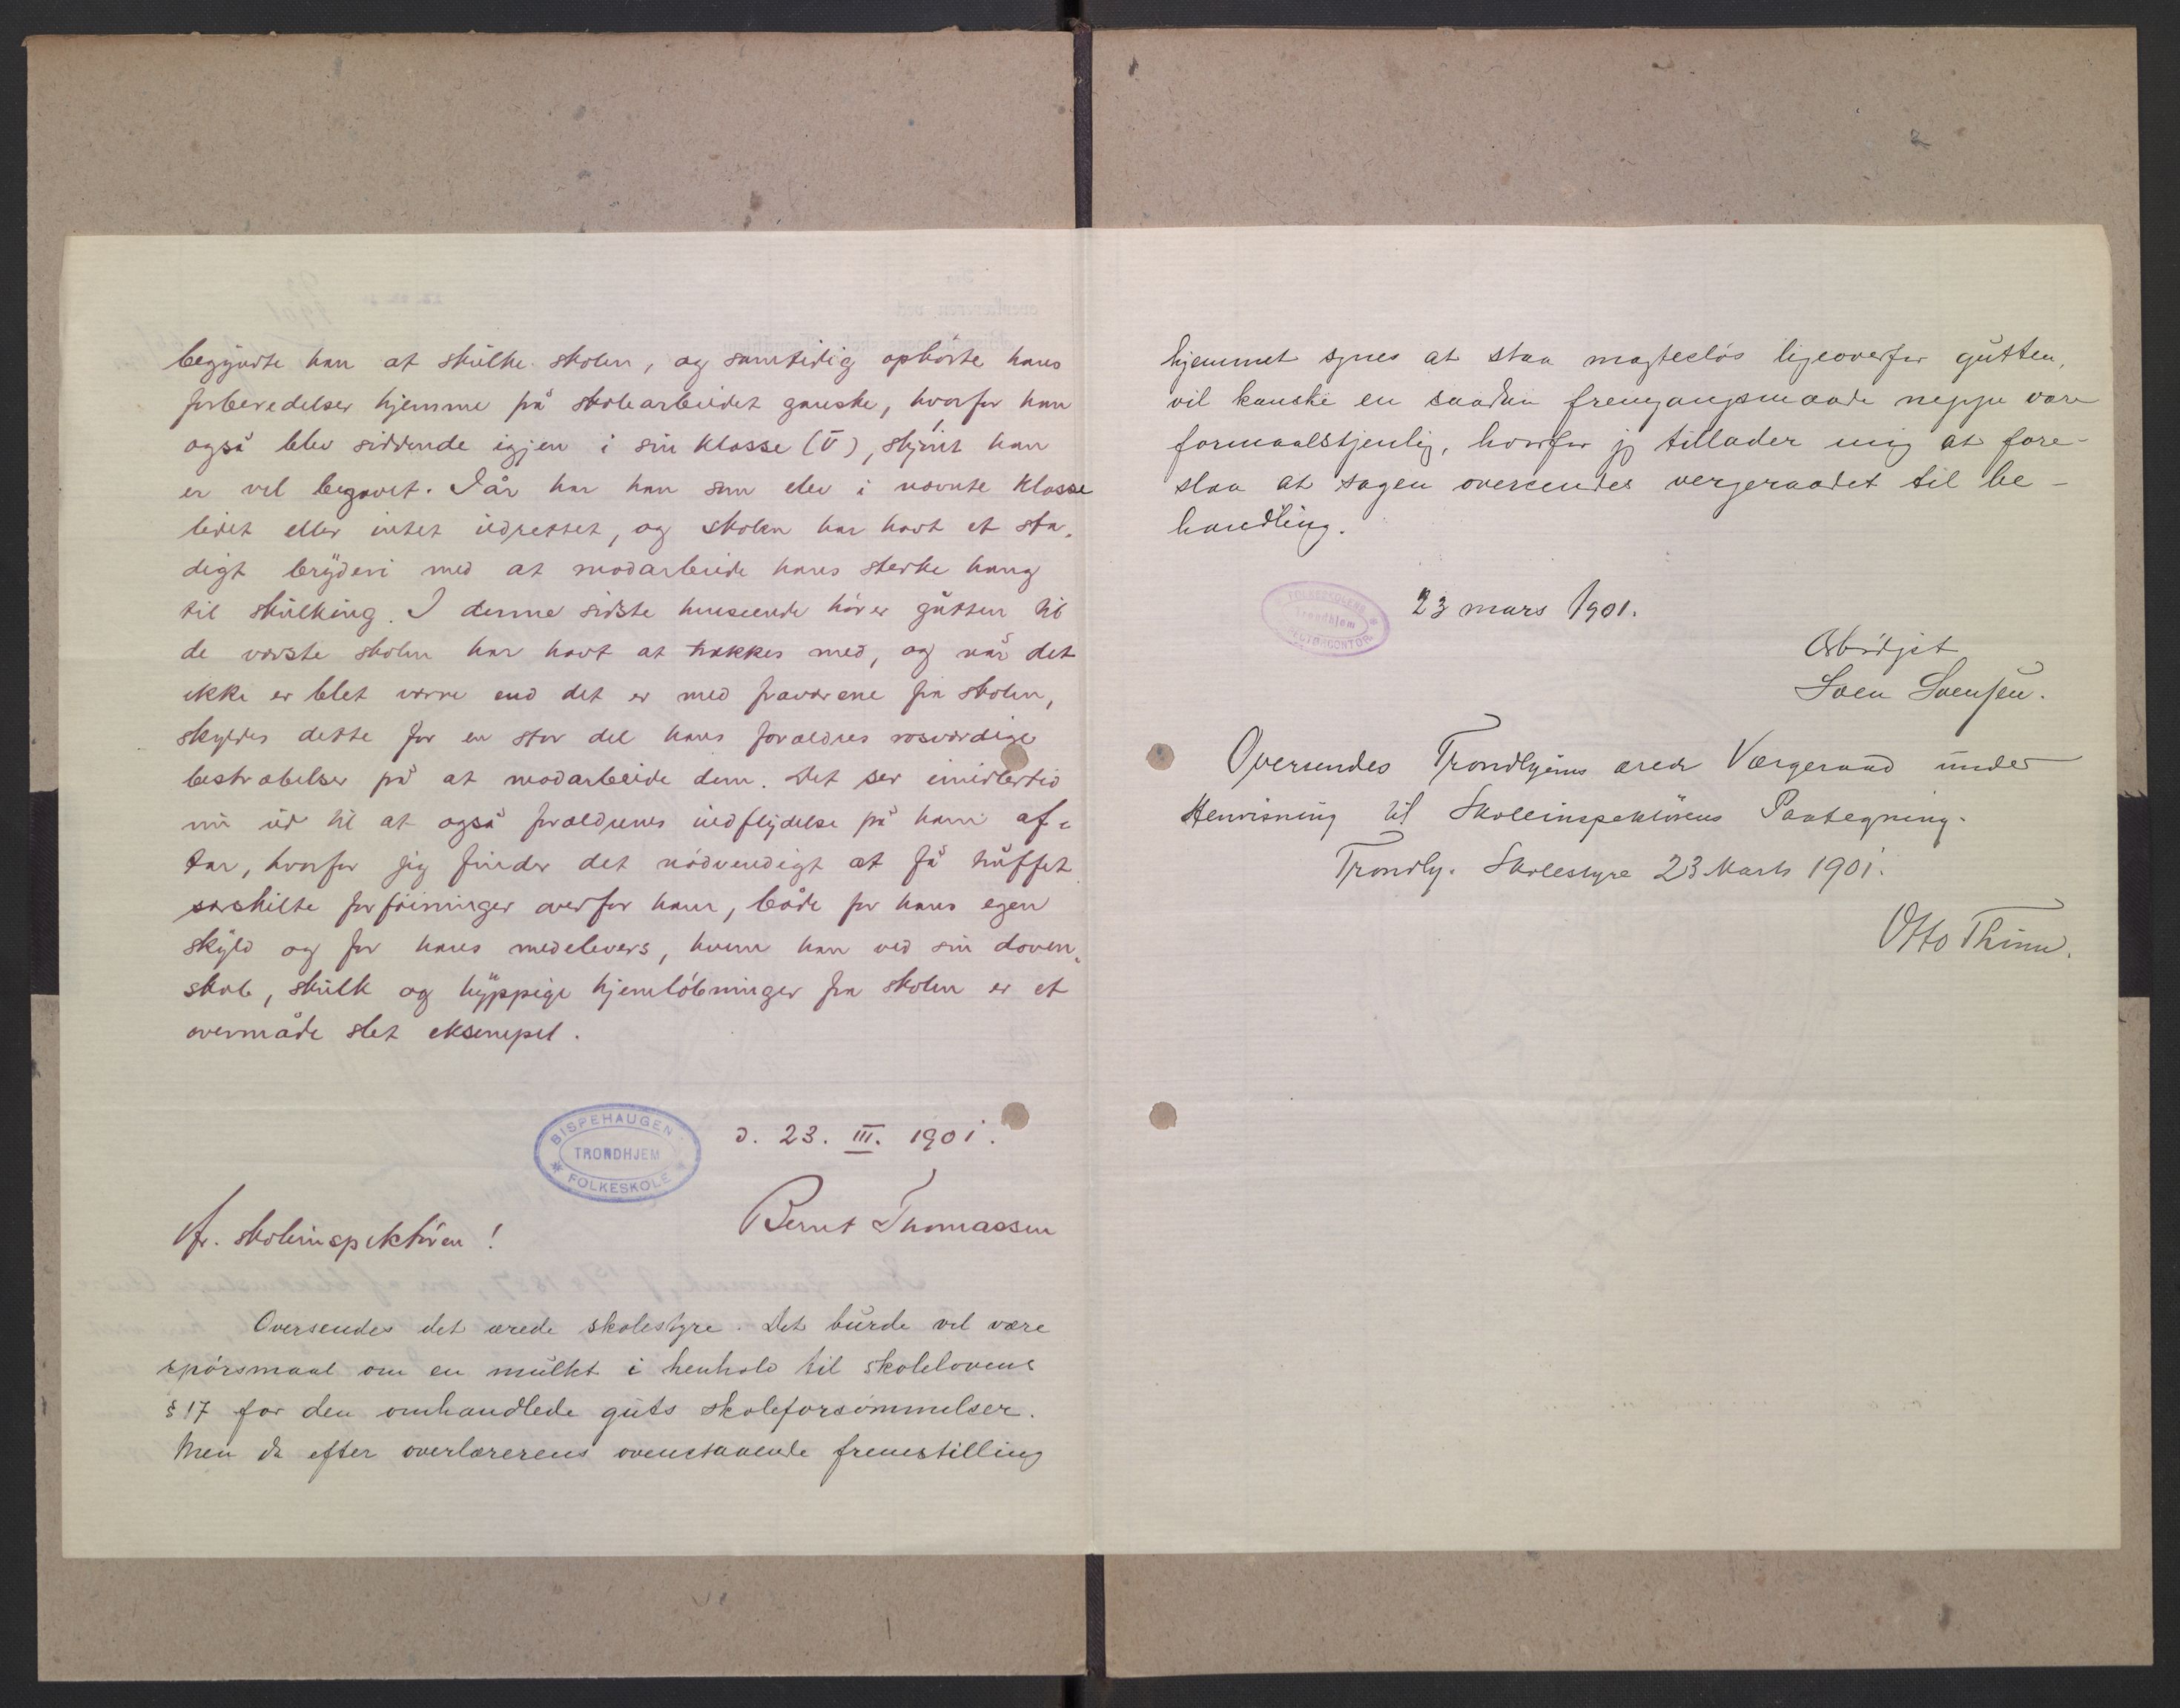 begyndte han at skulke skolen, og samtidig ophörte hans
forberedelser hjemme på skolearbeidet ganske, hvorfor han
også blev siddende igjen i sin klasse (V), skjönt han
er vel begavet. I år har han som elev i nævnte klasse
lidet eller intet udrettet, og skolen har havt et sta-
digt bryderi med at modarbeide hans sterke hang
til skulking. I denne sidste henseende hörer gutten til
de værste skolen har havt at trækkes med, og når det
ikke er blet værre end det er med fraværene fra skolen,
skyldes dette for en stor del hans forældres rosværdige
bestræbelser på at modarbeide dem. Det ser imidlertid
nu ud til at også forældrenes indflydelse på ham af-
tar, hvorfor jeg finder det nödvendigt at få truffet
særskilte forföininger overfor ham, både for hans egen
skyld og for hans medelevers, hvem han ved sin doven-
skab, skulk og hyppige hjemlöbninger fra skolen er et
overmåde slet eksempel.
BISPEHAUGEN
TRONDHJEM
FOLKESKOLE
d. 23. III. 1901.
Bernt Thomassen
Hr. skoleinspektören!
Oversendes det ærede skolestyre. Det burde vel være
spörsmaal om en mulkt i henhold til skolelovens
§ 17 for den omhandlede guts skoleforsömmelser.
Men da efter overlærerens ovenstaaende fremstilling
hjemmet synes at staa magteslös ligeoverfor gutten,
vil kanske en saadan fremgangsmaade neppe være
formaalstjenlig, hvorfor jeg tillader mig at fore-
slaa at sagen oversendes vergeraadet til be-
handling.
FOLKESKOLENS
Trondhjem
INSPECTØRCONTOR
23 mars 1901.
Ærbödigst
Sven Svensen.
Oversendes Trondhjems ærede Værgeraad under
Henvisning til Skoleinspektörens Paategning.
Trondhj. Skolestyre 23 Marts 1901.
Otto Thime.